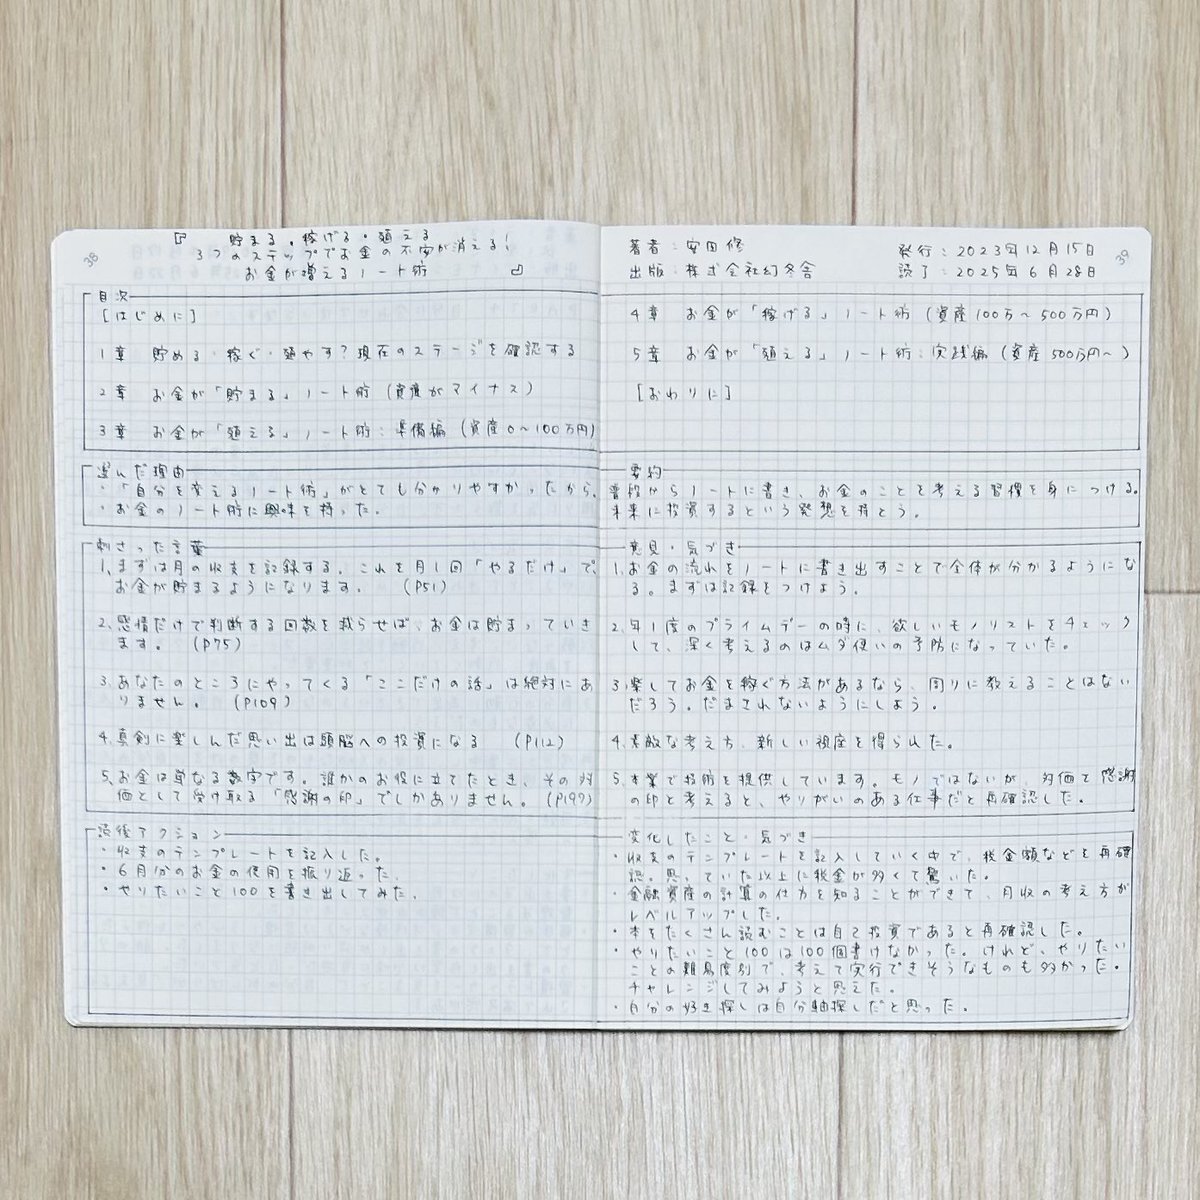 38
『 貯まる。稼げる。殖える
3つのステップでお金の不安が消える!
お金が増えるノート術 』
目次
[はじめに]
1章 貯める・稼ぐ・殖やす?現在のステージを確認する
2章 お金が「貯まる」ノート術(資産がマイナス)
3章 お金が「殖える」ノート術:準備編(資産0〜100万円)
選んだ理由
・「自分を変えるノート術」がとても分かりやすかったから。
・お金のノート術に興味を持った。
刺さった言葉
1、まずは月の収支を記録する。これを月1回「やるだけ」で、
お金が貯まるようになります。 (P51)
2、感情だけで判断する回数を減らせば、お金は貯まっていき
ます。 (P75)
3、あなたのところにやってくる「ここだけの話」は絶対にあ
りません。 (P109)
4、真剣に楽しんだ思い出は頭脳への投資になる (P112)
5、お金は単なる数字です。誰かのお役に立てたとき、その対
価として受け取る「感謝の印」でしかありません。(P197)
読後アクション
・収支のテンプレートを記入した。
・6月分のお金の使用を振り返った。
・やりたいこと100を書き出してみた。
著者:安田修 発行:2023年12月15日
出版:株式会社幻冬舎 読了:2025年6月28日
39
4章 お金が「稼げる」ノート術(資産100万〜500万円)
5章 お金が「殖える」ノート術:実践編(資産500万円〜)
[おわりに]
要約
普段からノートに書き、お金のことを考える習慣を身につける。
未来に投資するという発想を持とう。
意見・気づき
1、お金の流れをノートに書き出すことで全体が分かるようにな
る。まずは記録をつけよう。
2、年1度のプライムデーの時に、欲しいモノリストをチェック
して、深く考えるのはムダ使いの予防になっていた。
3、楽してお金を稼ぐ方法があるなら、周りに教えることはない
だろう。だまされないようにしよう。
4、素敵な考え方、新しい視座を得られた。
5、本業で技術を提供しています。モノではないが、対価を感謝
の印と考えると、やりがいのある仕事だと再確認した。
変化したこと・気づき
・収支のテンプレートを記入していく中で、税金額などを再確
認。思っていた以上に税金が多くて驚いた。
・金融資産の計算の仕方を知ることができて、月収の考え方が
レベルアップした。
・本をたくさん読むことは自己投資であると再確認した。
・やりたいこと100は100個書けなかった。けれど、やりたい
ことの難易度別で、考えて実行できそうなものも多かった。
チャレンジしてみようと思えた。
・自分の好き探しは自分軸探しだと思った。